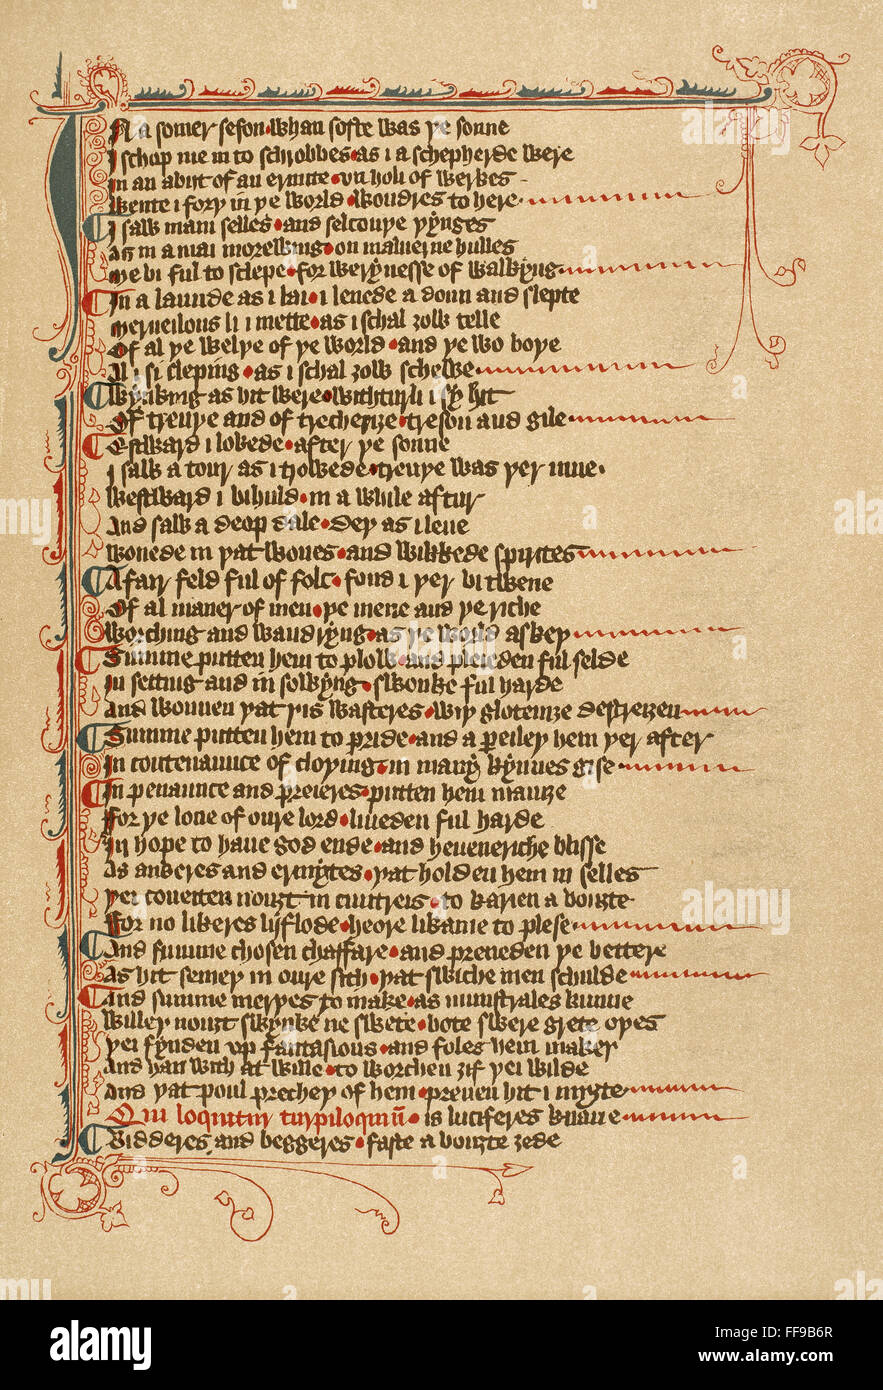 In a somer seson·whan softe was ye sonne
I schop me in to schrobbes·as i a schepherde were
In an abiit of an ermite·vn holi of werkes
Wente i fory in ye world·woudres to here
I saw mani selles·and selcouye yynges
As in a mai morewing·on maluerne hulles
Me bi ful to sclepe·for werynesse of walkyng
In a launde as i lai·i lenede a doun and slepte
Merueilous li i mette·as i schal zow telle
Of al ye welye of ye world·and ye wo boye
Al i si cleping·as i schal zow schewe
Wynking as hit were·witturli i sy hit
Of treuye and of trecherize·treson and gile
Estward i lokede·after ye sonne
I saw a tour as i trowede·treuye was yer inne·
Westward i bihuld·in a while aftur
And saw a deop dale·dey as i leue
Wonede in yat wones·and wikkede spirites
A fair feld ful of folc·fond i yer bi twene
Of al maner of men·ye mene and ye riche
Worching and wandryng·as ye world askey
Summe putten hem to plow·and pleieden ful selde
In setting and in sowyng·swonke ful harde
And wonnen yat yis wasteres·wiy glotenize destreizen
Summe putten hem to pride·and a peiley hem yer after
In contenaunce of cloying·in many kynnes gise
In penaunce and preieres·putten hem manize
For ye loue of oure lord·liueden ful harde
In hope to haue god ende·and heueneriche blisse
As ankeres and ermytes·yat holden hem in selles
Yei coueiten nouzt in cuntreis·to karien a bouzte
For no likeres lyflode·heore likame to plese
And summe chosen chaffare·and preueden ye bettere
As hit semey in oure sich·yat swiche men schulde
And summe meryes to make·as munstrales kunne
Willey nouzt swynke ne swete·bote swere grete oyes
Yei fynden vp fantasious·and foles hem maken
And han with at wille·to worchen zif yei wilde
And yat poul prechey of hem·preuen hit i myzte
Qui loquitur turpiloquiū·is luciferes knaue
Bidderes and beggeres·faste a bouzte zede
alamy
alamy
alamy stock photo
FF9B6R
www.alamy.com